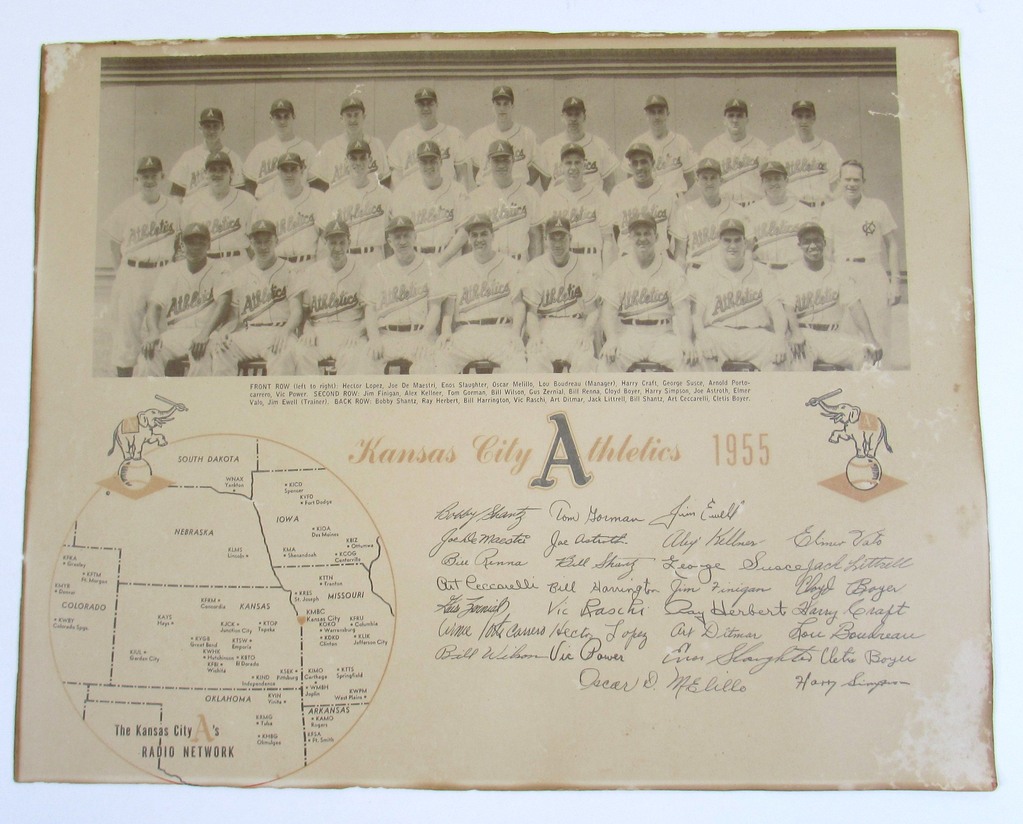 FRONT ROW (left to right): Hector Lopez, Joe De Maestri, Enos Slaughter, Oscar Melillo, Lou Boudreau (Manager), Harry Craft, George Susce, Arnold Porto-
carrero, Vic Power. SECOND ROW: Jim Finigan, Alex Kellner, Tom Gorman, Bill Wilson, Gus Zernial, Bill Renna, Cloyd Boyer, Harry Simpson, Joe Astroth, Elmer
Valo, Jim Ewell (Trainer). BACK ROW: Bobby Shantz, Ray Herbert, Bill Harrington, Vic Raschi, Art Ditmar, Jack Littrell, Bill Shantz, Art Ceccarelli, Cletis Boyer.
Kansas City Athletics 1955
SOUTH DAKOTA
WNAX
Yankton
KICD
Spencer
KVFD
Fort Dodge
IOWA
NEBRASKA
KIOA
Des Moines
KBIZ
Ottumwa
KLMS
Lincoln
KMA
Shenandoah
KCOG
Centerville
KFKA
Greeley
KFTM
Ft. Morgan
KTTN
Trenton
KMYR
Denver
COLORADO
KRES
St. Joseph
MISSOURI
KFRM
Concordia
KANSAS
KMBC
Kansas City
KWBY
Colorado Spgs.
KAYS
Hays
KJCK
Junction City
KTOP
Topeka
KOKO
Warrensburg
KFRU
Columbia
KDKD
Clinton
KLIK
Jefferson City
KVGB
Great Bend
KTSW
Emporia
KIUL
Garden City
KWHK
Hutchinson
KBTO
El Dorado
KFBI
Wichita
KIND
Independence
KSEK
Pittsburg
KIMO
Carthage
KTTS
Springfield
WMBH
Joplin
KWPM
West Plains
OKLAHOMA
KVIN
Vinita
ARKANSAS
KRMG
Tulsa
KAMO
Rogers
KHBG
Okmulgee
KFSA
Ft. Smith
The Kansas City A's
RADIO NETWORK
Bobby Shantz Tom Gorman Jim Ewell
Joe De Maestri Joe Astroth Alex Kellner Elmer Valo
Bill Renna Bill Shantz George Susce Jack Littrell
Art Ceccarelli Bill Harrington Jim Finigan Cloyd Boyer
Gus Zernial Vic Raschi Ray Herbert Harry Craft
Arnie Portocarrero Hector Lopez Art Ditmar Lou Boudreau
Bill Wilson Vic Power Enos Slaughter Cletis Boyer
Oscar D. Melillo Harry Simpson